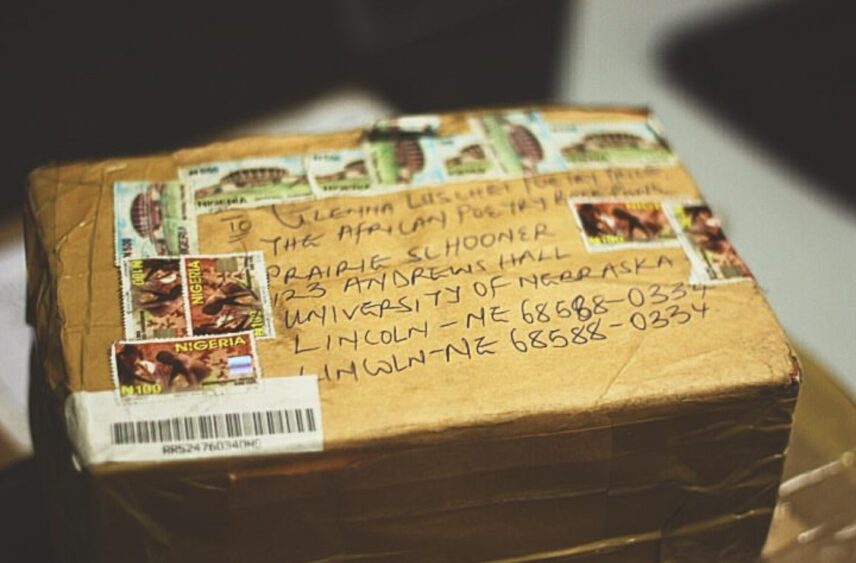 NIGERIA
TO
GLENNA LUSCHEI POETRY PRIZE
THE AFRICAN POETRY BOOK FUND
PRAIRIE SCHOONER
123 ANDREWS HALL
UNIVERSITY OF NEBRASKA
LINCOLN - NE 68588-0334
LINCOLN-NE 68588-0334
NIGERIA
NIGERIA
₦100